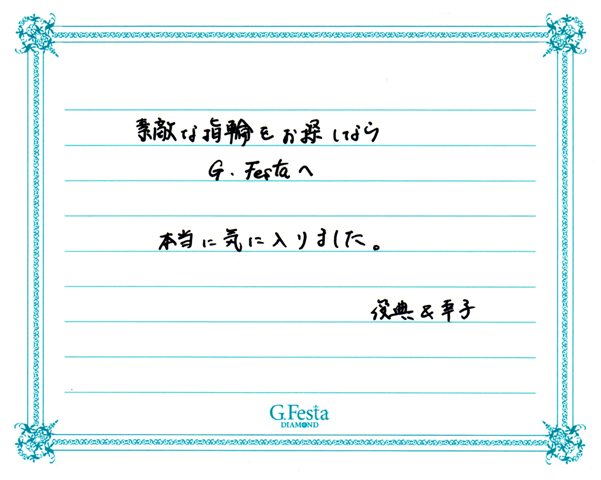 素敵な指輪をお探しなら
G. Festaへ
本当に気に入りました。
俊典&幸子
G.Festa
DIAMOND